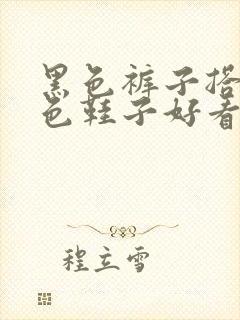 黑色裤子搭
色鞋子好看
程立雪